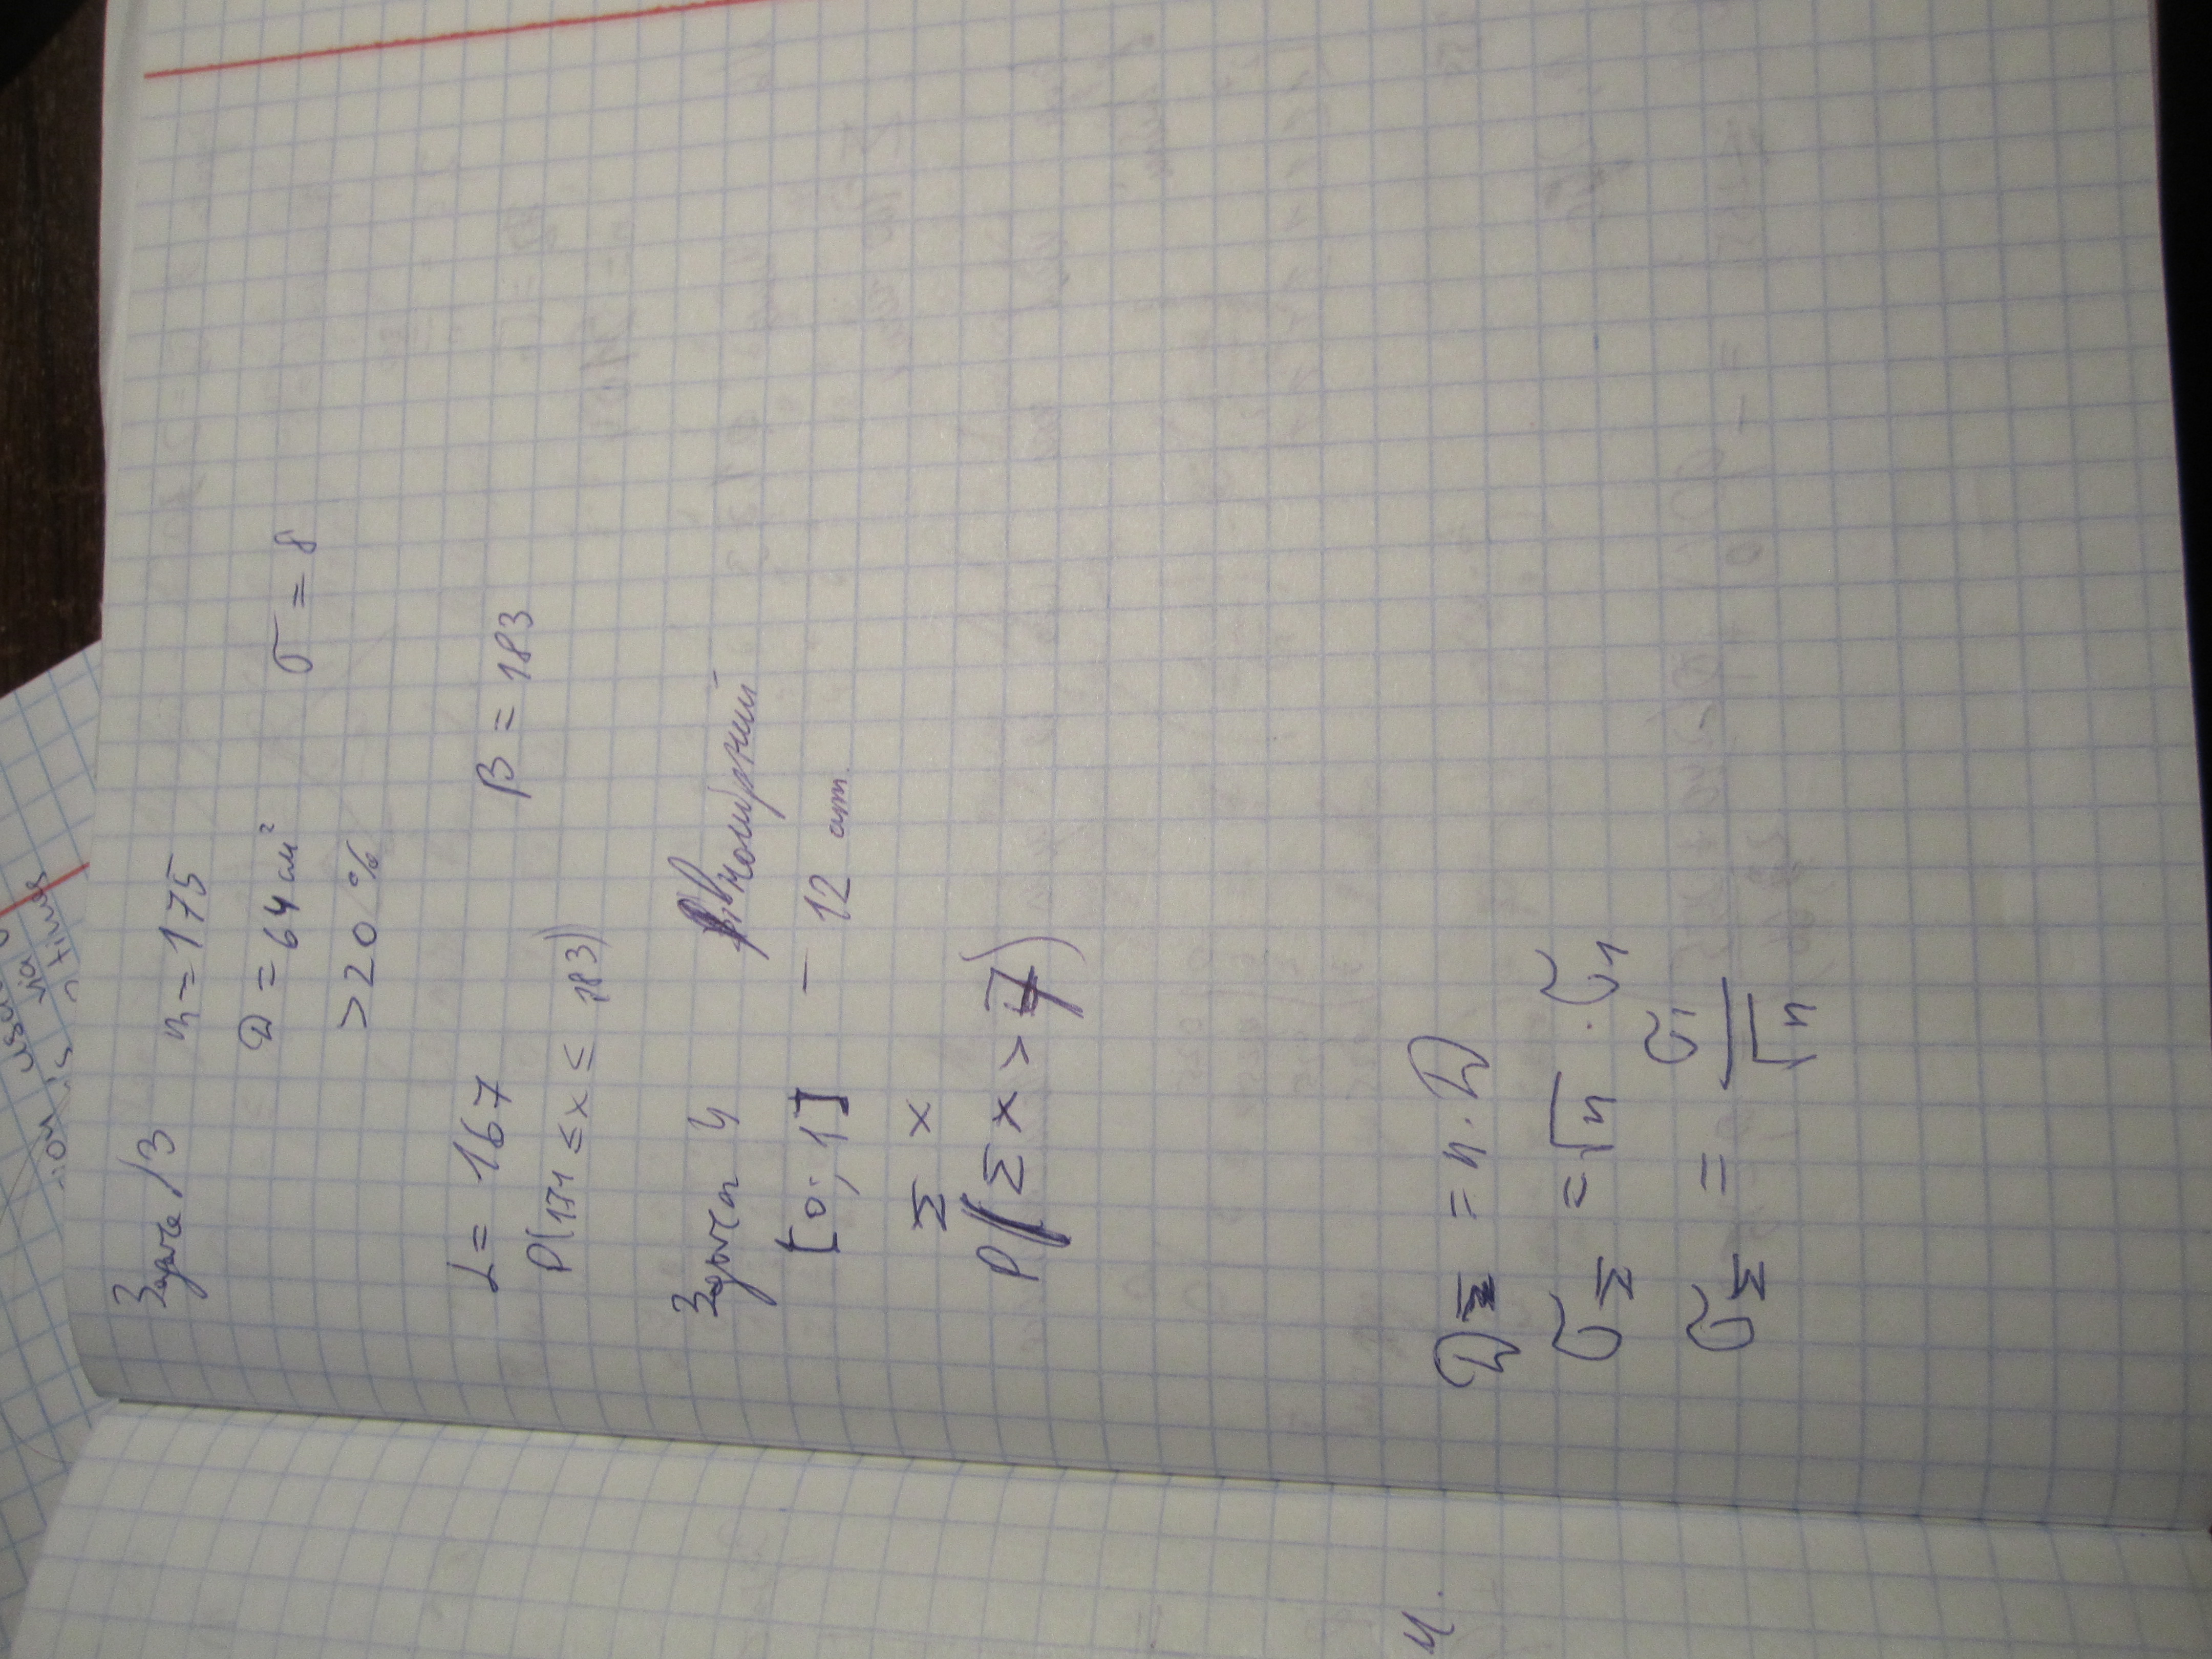 ion usa
is via
times
Задача 3
m = 175
D = 64 см²
σ = 8
> 20 %
α = 167
β = 183
P(171 ≤ x ≤ 183)
Задача 4 Рівномірний
[0; 1] - 12 шт.
Σ x
P(Σ x > 7)
4.
D_Σ = n · D
σ_Σ = √n · σ₁
σ_Σ = σ₁ / √n